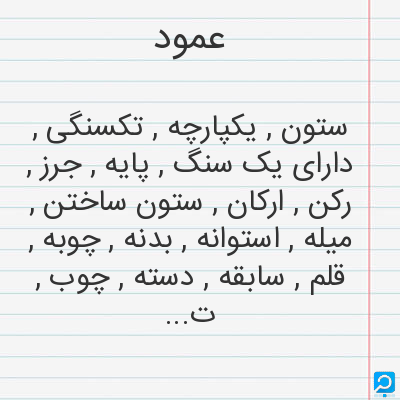 عمود
ستون , یکپارچه , تکسنگی ,
دارای یک سنگ , پایه , جرز ,
رکن , ارکان , ستون ساختن ,
میله , استوانه , بدنه , چوبه ,
قلم , سابقه , دسته , چوب ,
ت...